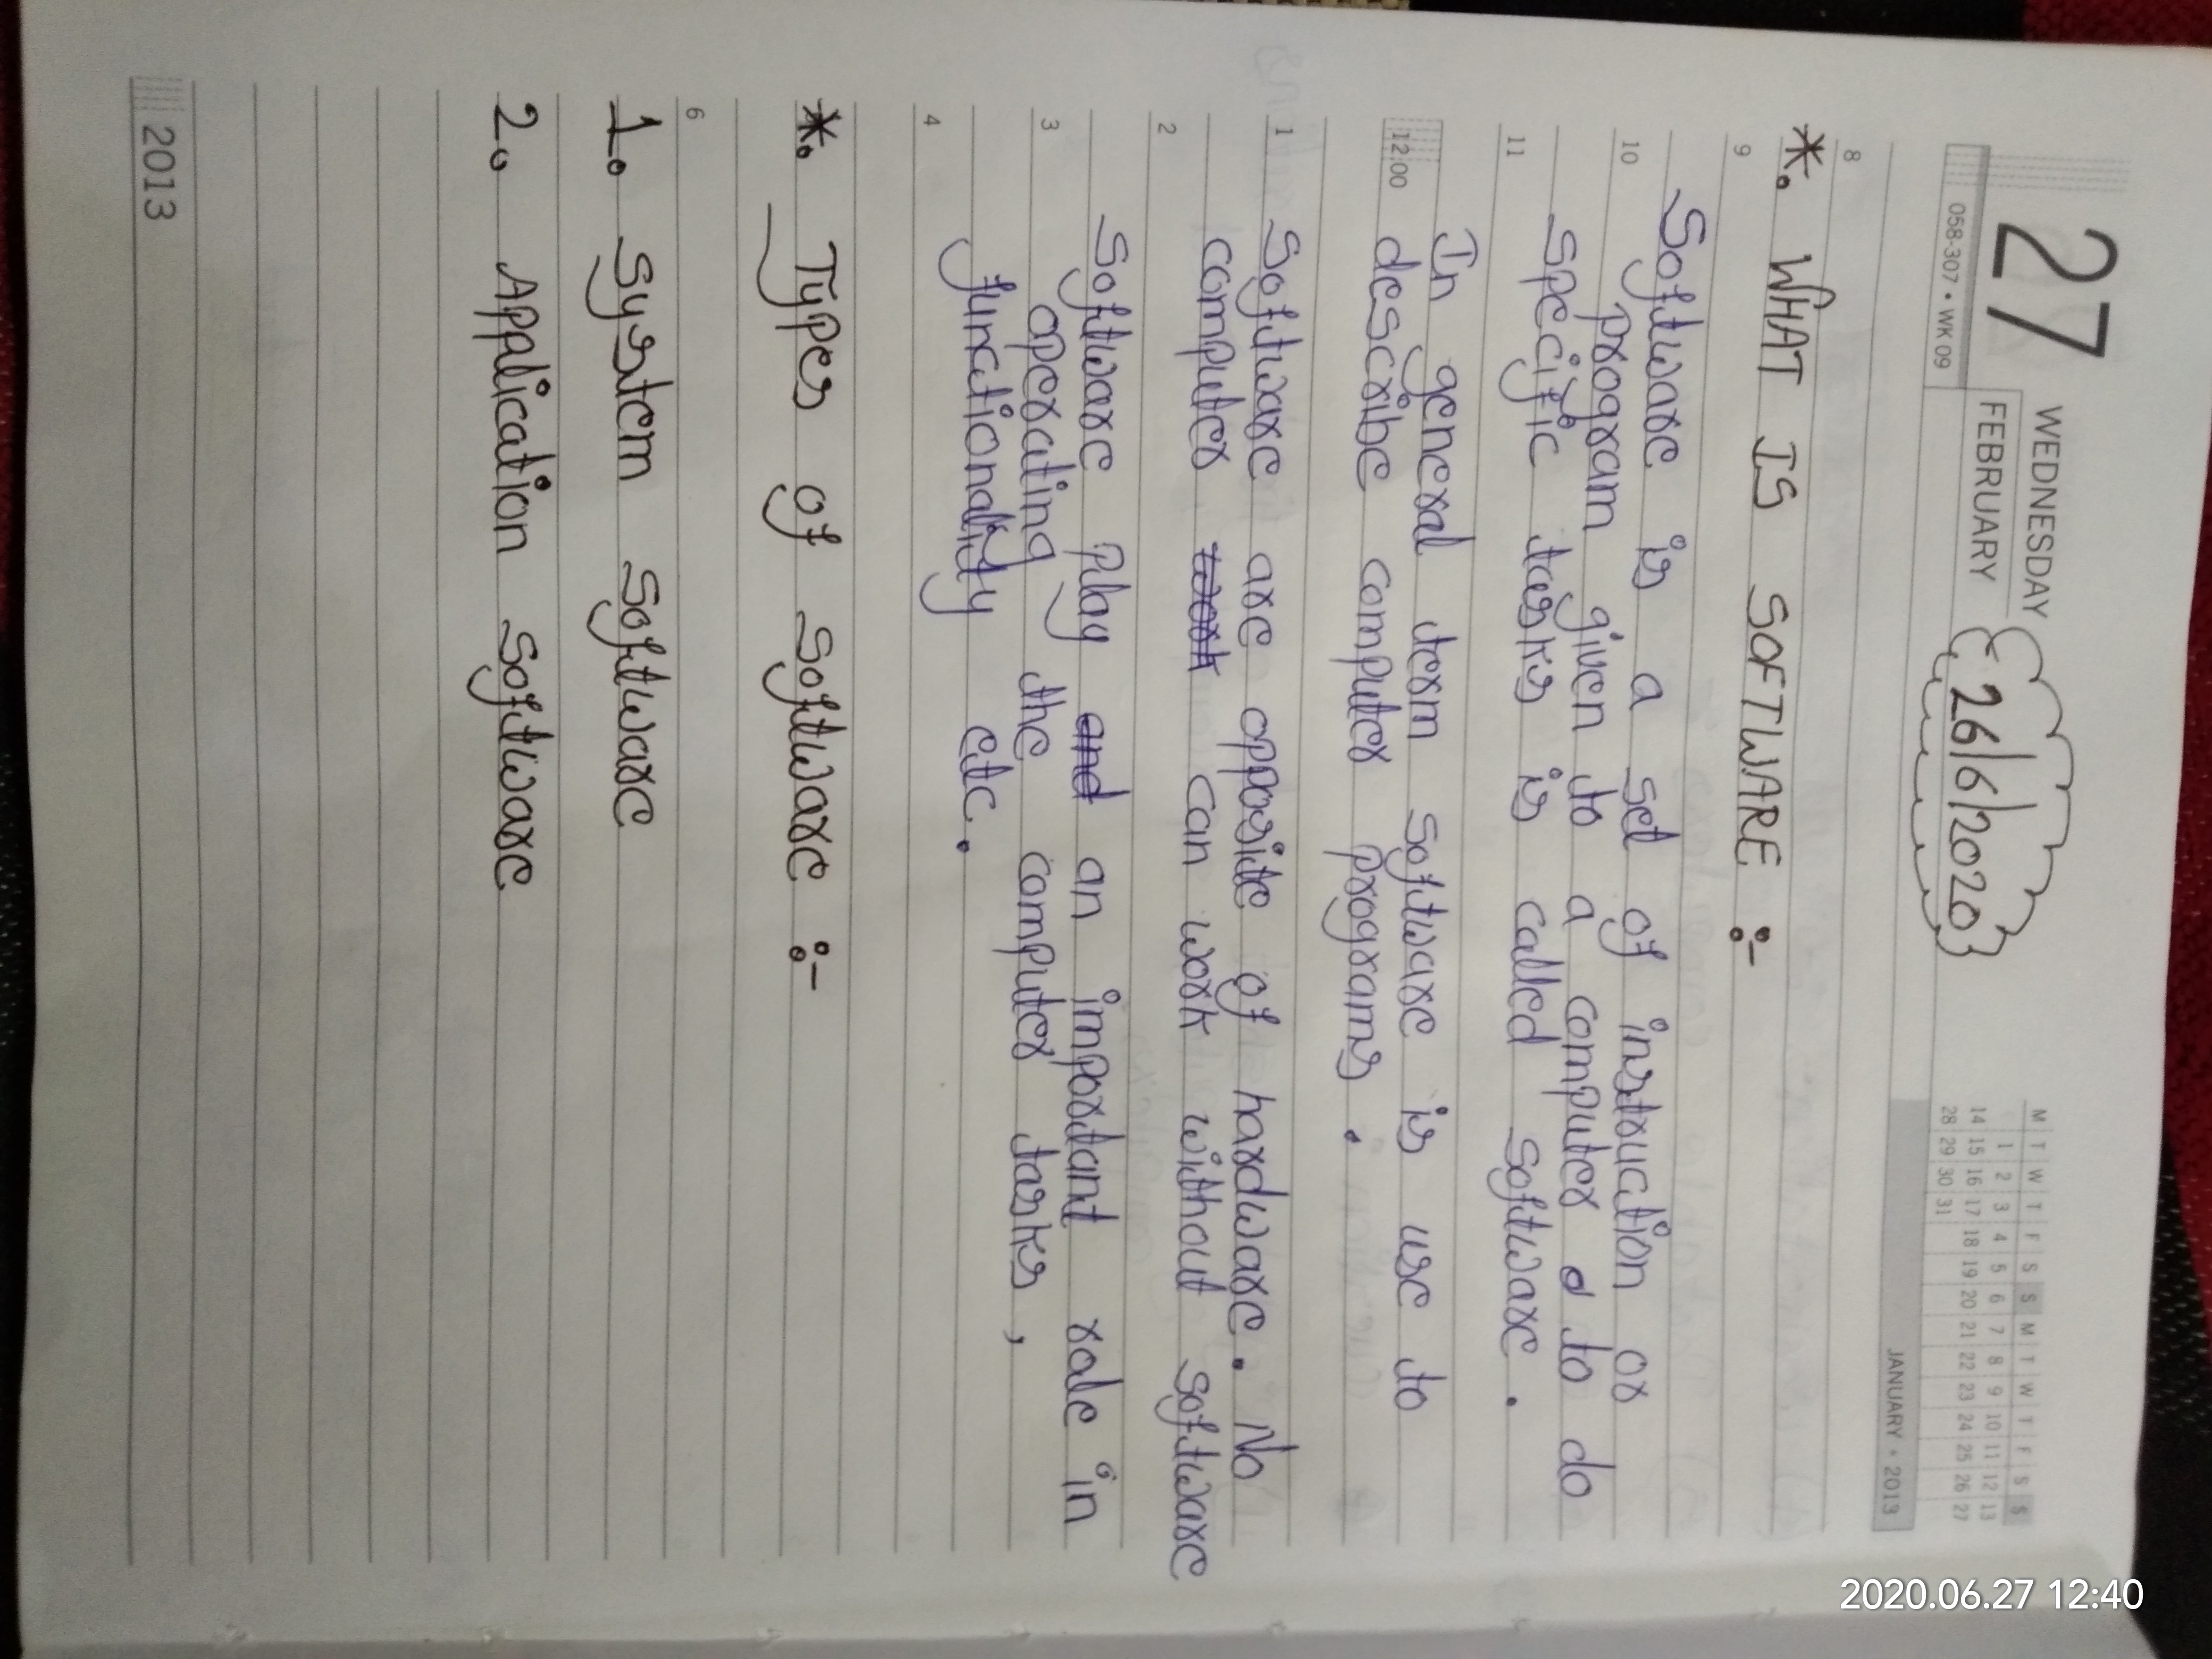 27
WEDNESDAY
FEBRUARY
058-307 • WK 09
26/6/2020
M T W T F S S M T W T F S S
1 2 3 4 5 6 7 8 9 10 11 12 13
14 15 16 17 18 19 20 21 22 23 24 25 26 27
28 29 30 31
JANUARY • 2013
2020.06.27 12:40
8
*. WHAT IS SOFTWARE :-
9
Software is a set of instruction or
10
program given to a computer to do
specific tasks is called software.
11
In general term software is use to
12:00
describe computer programs.
1
Software are opposite of hardware. No
computer work can work without software
2
Software play and an important role in
3
operating the computer tasks,
functionality etc.
4
*. Types of software :-
6
1. System software
2. Application software
2013